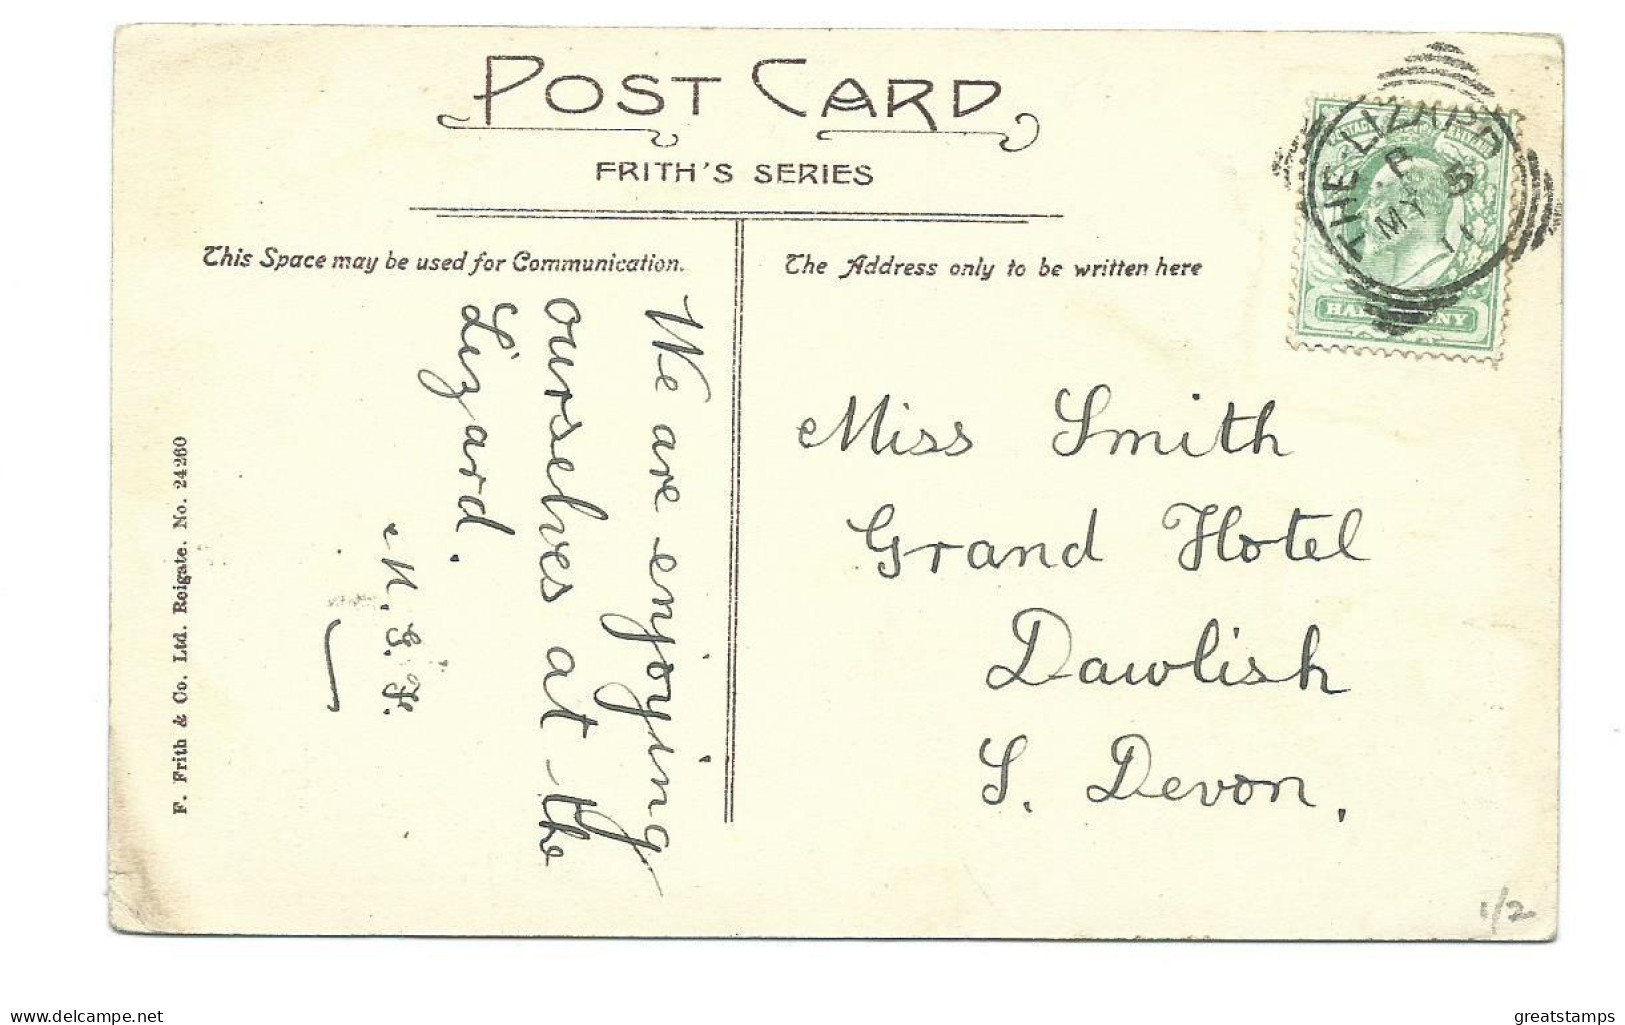 POST CARD
FRITH'S SERIES
This Space may be used for Communication.
The Address only to be written here
THE-LIZARD
P 5
MY 11
HALFPENNY
We are enjoying
ourselves at the
Lizard.
M. G. F.
Miss Smith
Grand Hotel
Dawlish
S. Devon.
F. Frith & Co. Ltd. Reigate. No. 24260
1/2
www.delcampe.net
greatstamps